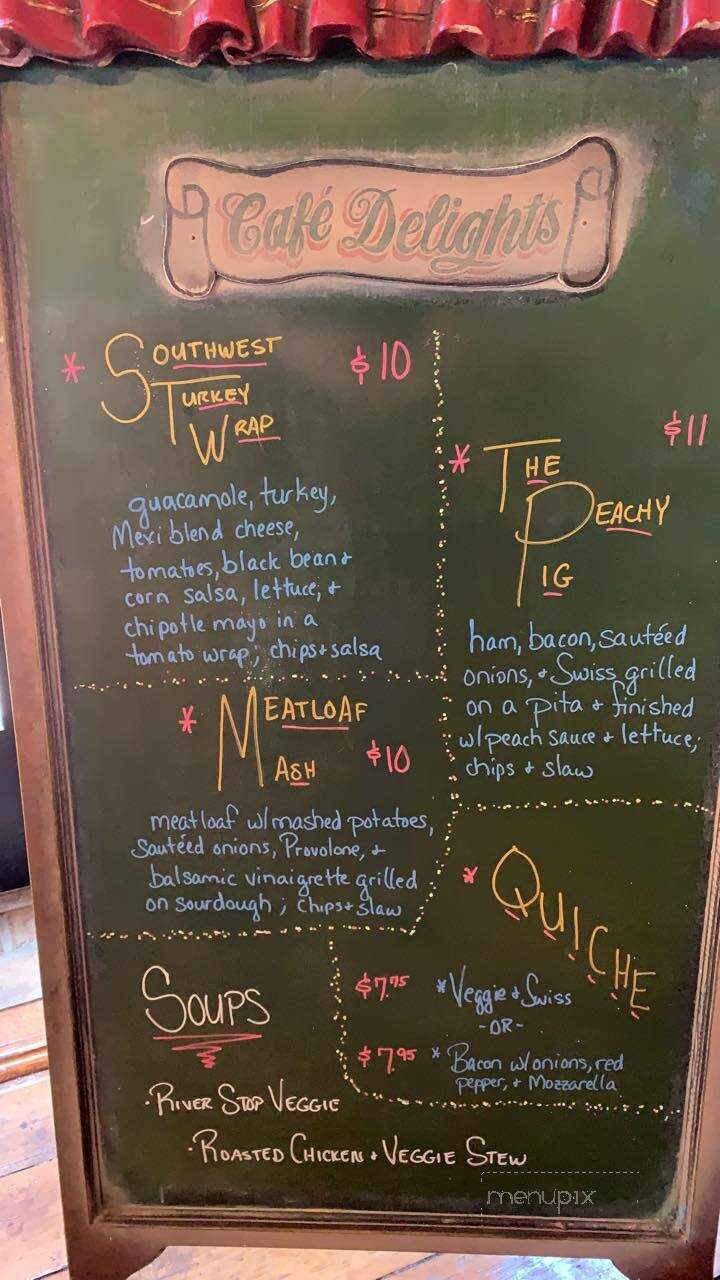 Café Delights
* SOUTHWEST $10
TURKEY
WRAP
guacamole, turkey,
Mexi blend cheese,
tomatoes, black bean +
corn salsa, lettuce, +
chipotle mayo in a
tomato wrap; chips + salsa
$11
* THE
PEACHY
PIG
ham, bacon, sautéed
onions, + Swiss grilled
on a pita + finished
w/peach sauce + lettuce;
chips + slaw
* MEATLOAF
MASH $10
meatloaf w/mashed potatoes,
Sautéed onions, Provolone, +
balsamic vinaigrette grilled
on sourdough; chips + slaw
* QUICHE
$7.75 *Veggie + Swiss
-OR-
$7.95 * Bacon w/onions, red
pepper, + Mozzarella
SOUPS
·RIVER STOP VEGGIE
·ROASTED CHICKEN + VEGGIE STEW
menupix